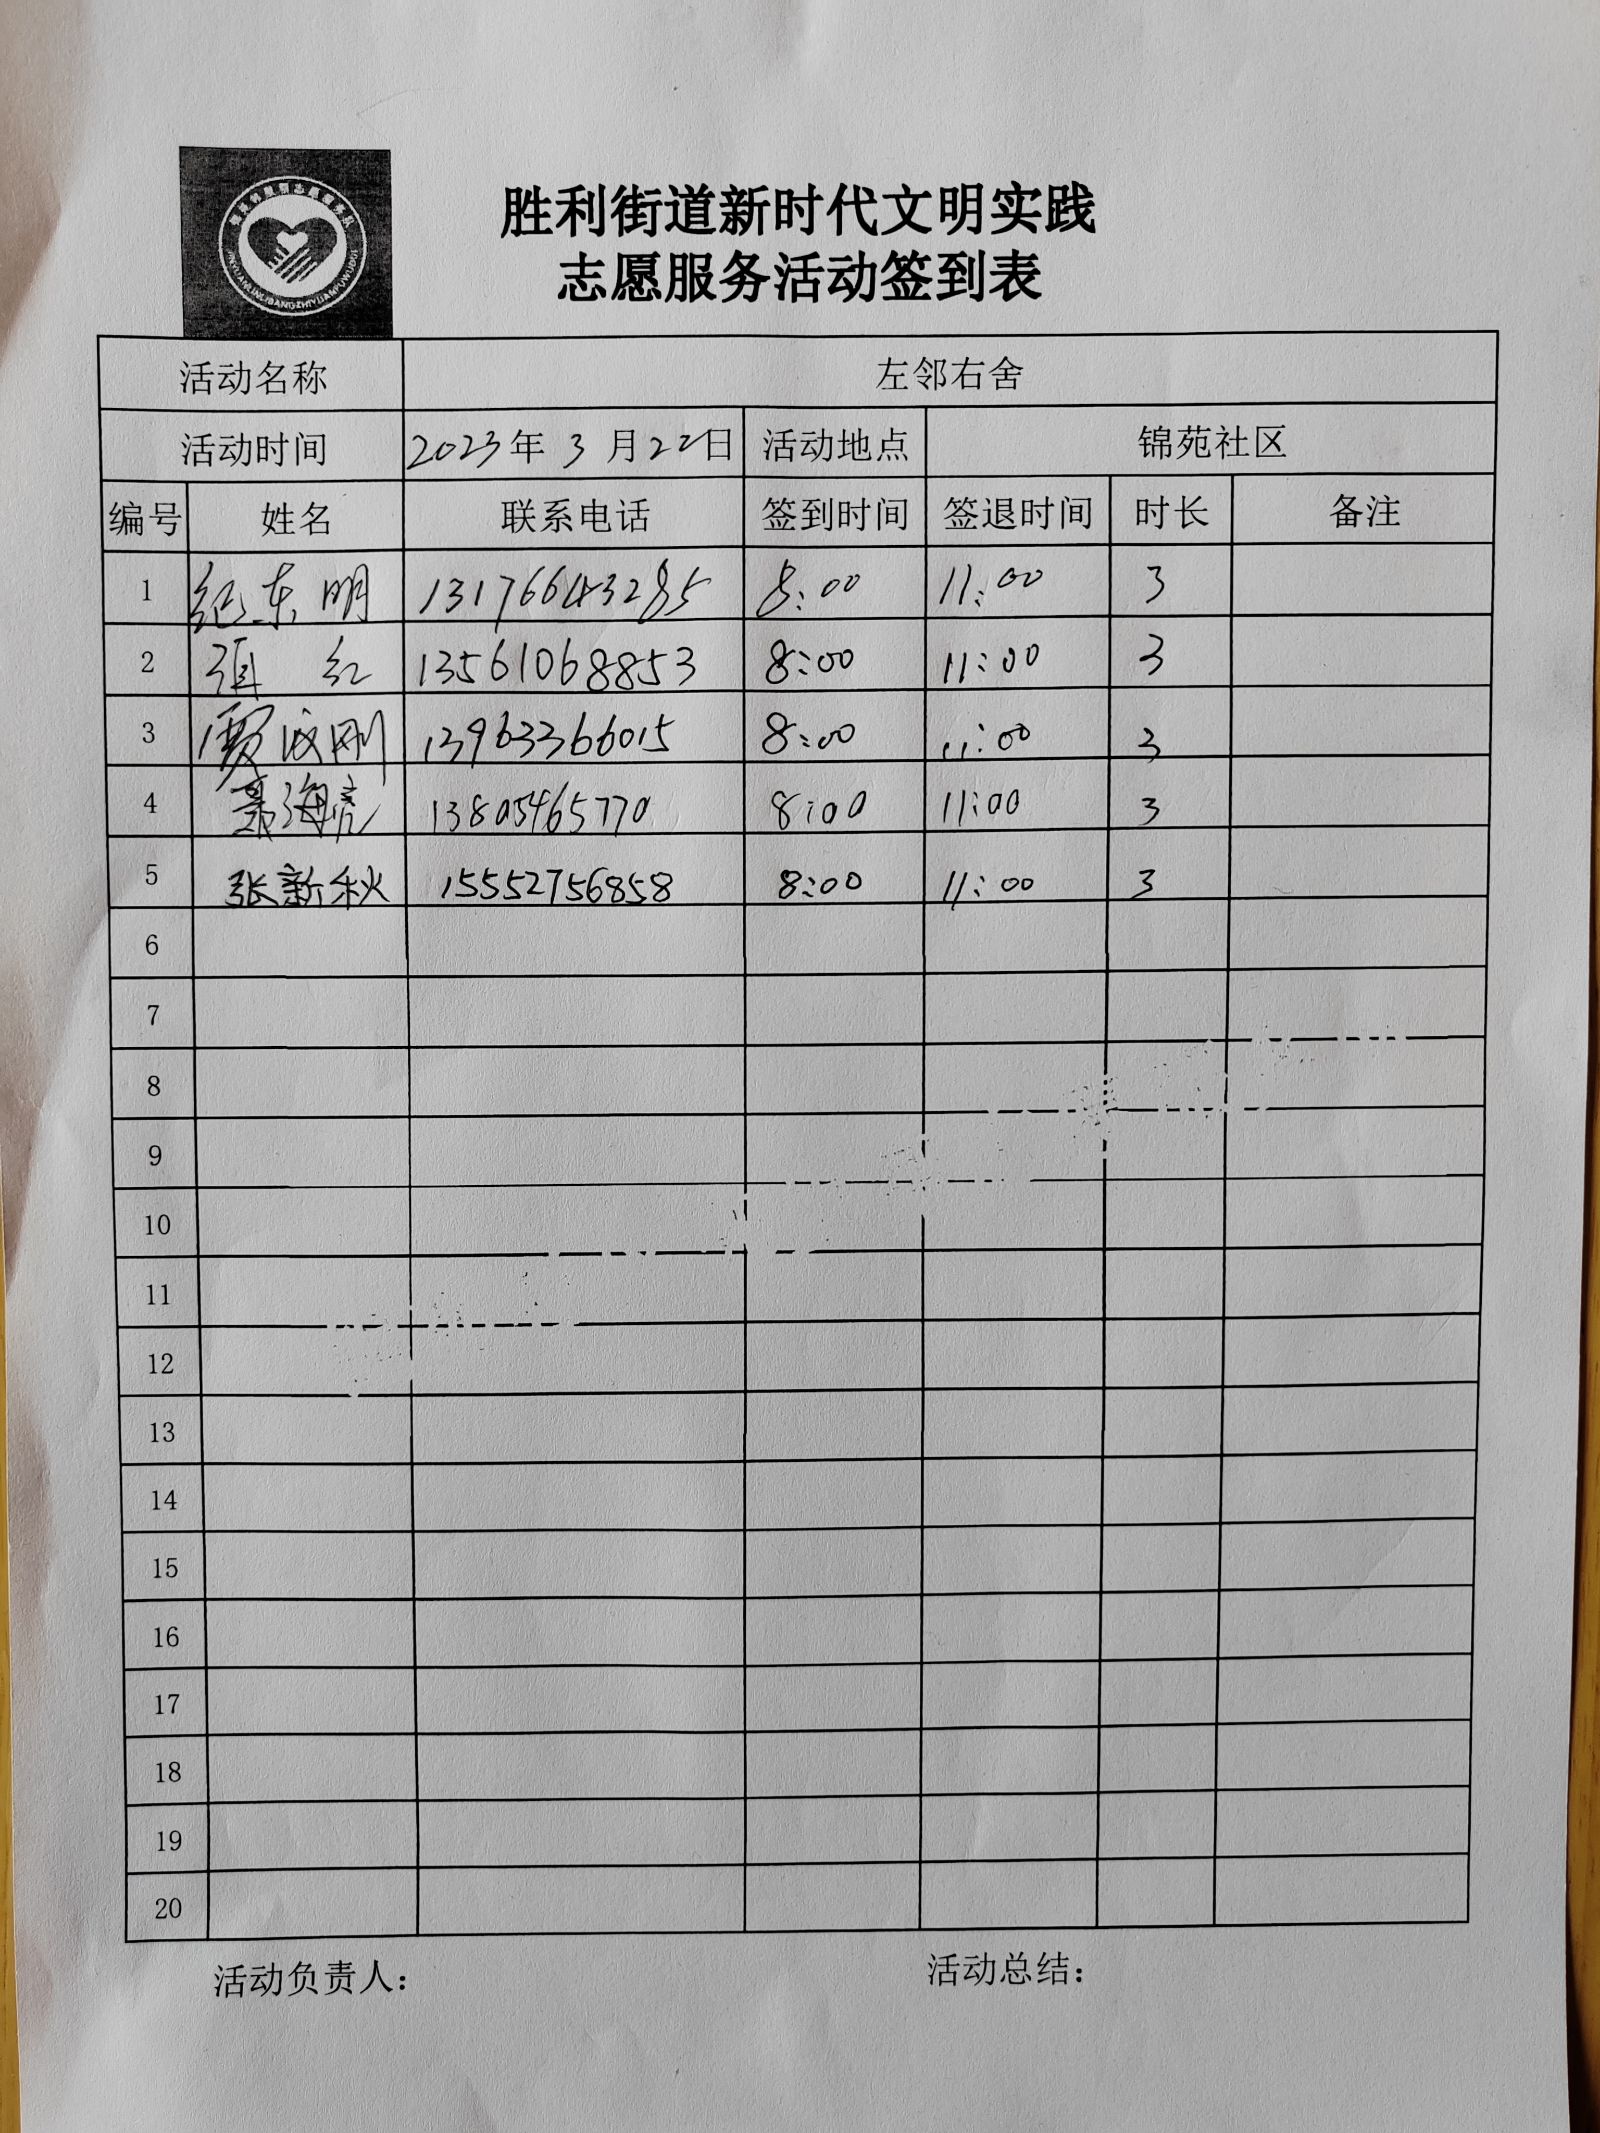 胜利街道新时代文明实践
志愿服务活动签到表
活动名称 左邻右舍
活动时间 2023年 3 月22日 活动地点 锦苑社区
编号 姓名 联系电话 签到时间 签退时间 时长 备注
1 纪东明 13176643285 8:00 11:00 3
2 张 红 13561068853 8:00 11:00 3
3 贾 刚 13963366015 8:00 11:00 3
4 聂海亮 13805465770 8:00 11:00 3
5 张新秋 15552756858 8:00 11:00 3
6
7
8
9
10
11
12
13
14
15
16
17
18
19
20
活动负责人: 活动总结: